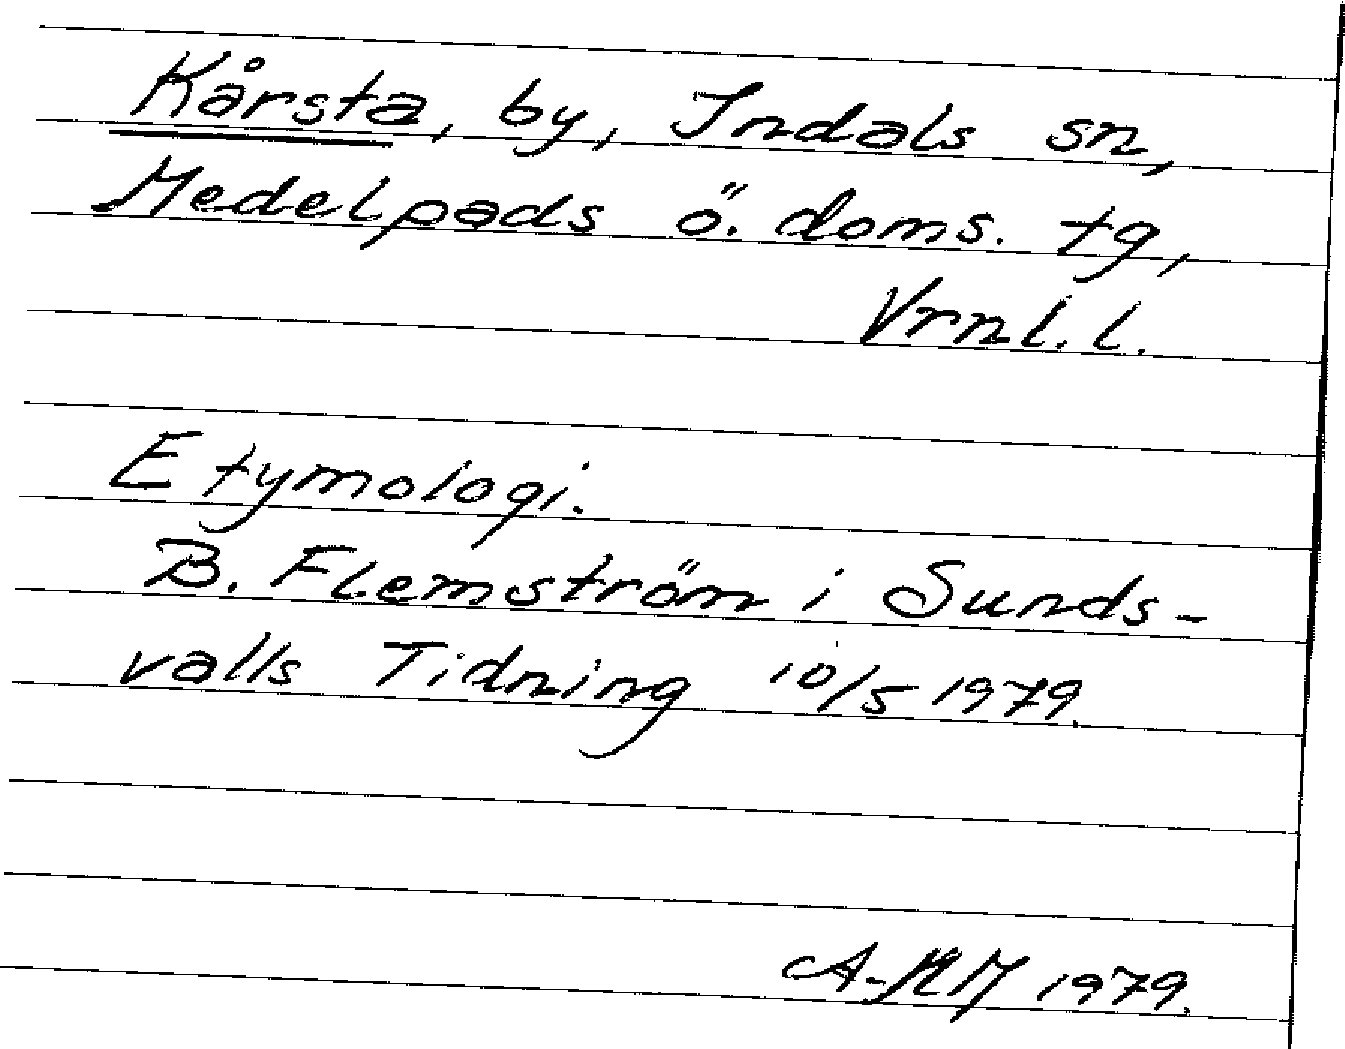 Kårsta, by, Indals sn,
Medelpads ö. doms. tg,
Vrnl. l.
Etymologi.
B. Flemström i Sunds-
valls Tidning 10/5 1979.
1979.